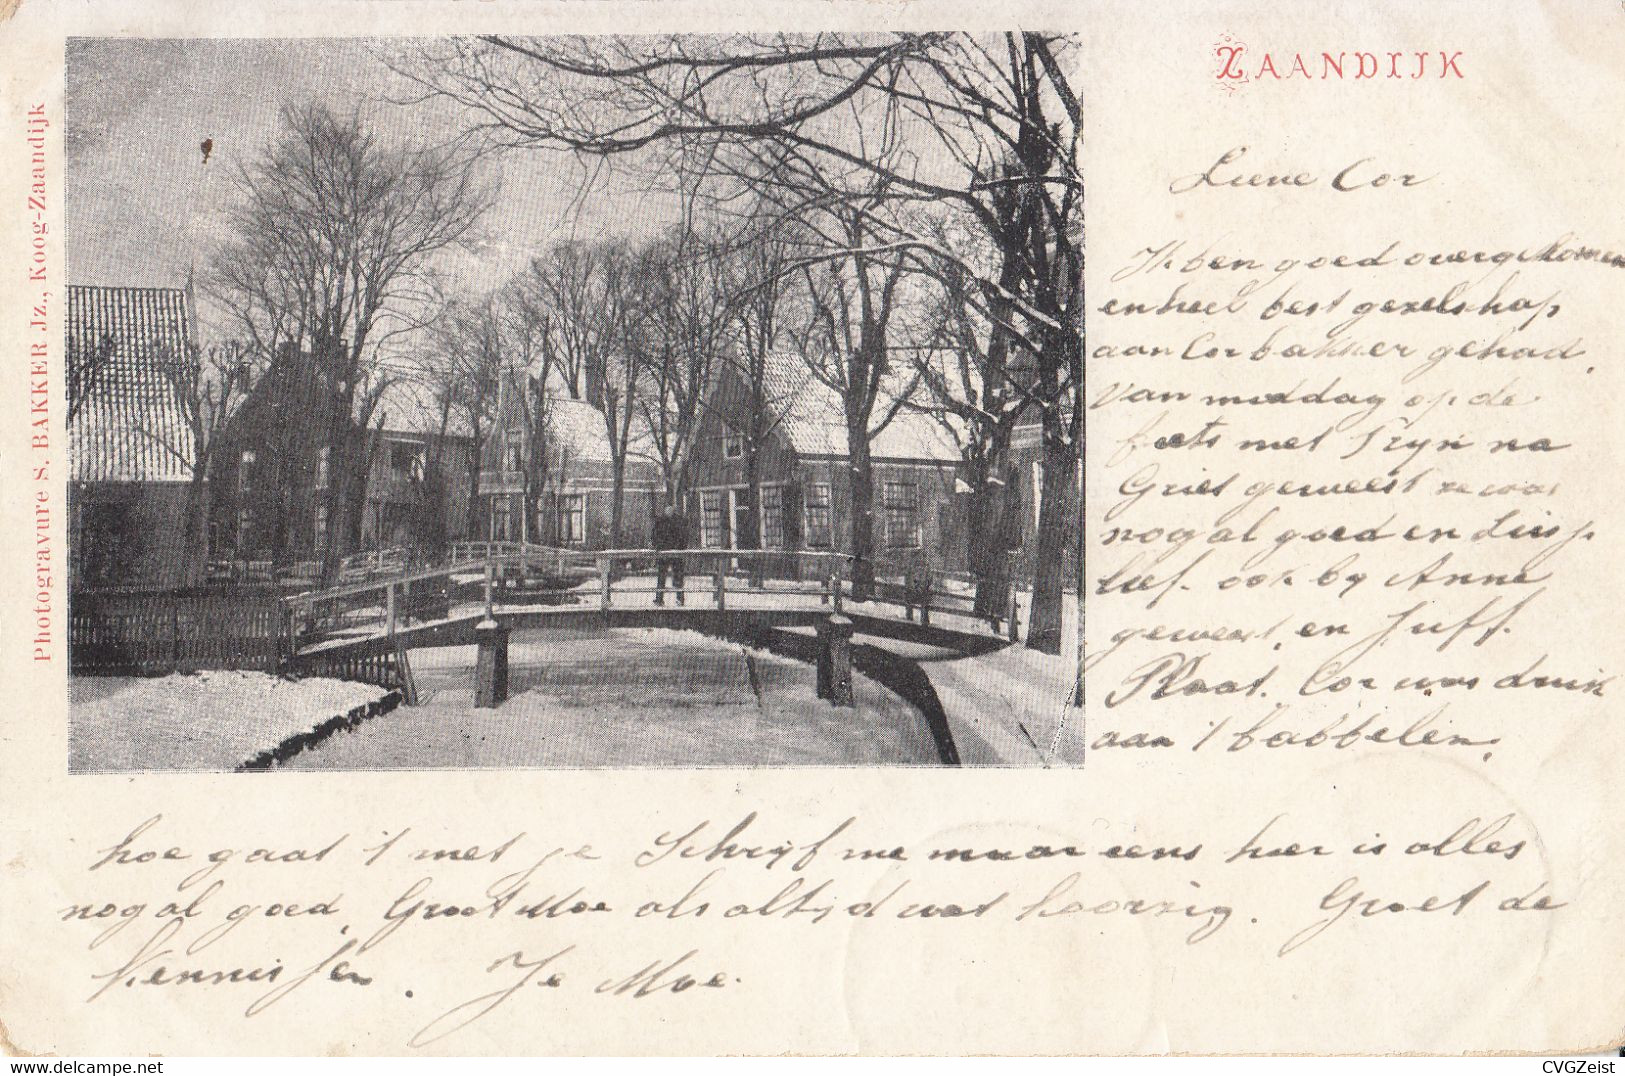 ZAANDIJK
Photogravure S. BAKKER Jz., Koog-Zaandijk
Lieve Cor
Ik ben goed overgekomen
en heel best gezelschap
aan Cor bakker gehad.
Van middag op de
fiets met Tryn na
Griet geweest ze was
nog al goed en
lief. ook by Anna
geweest, en Juff.
Plaat. Cor was druk
aan 't babbelen.
hoe gaat 't met je Schryf me maar eens hier is alles
nog al goed. Groet Moe als altyd wat hoorzig. Groet de
Kennissen. Je Moe.
www.delcampe.net
CVGZeist